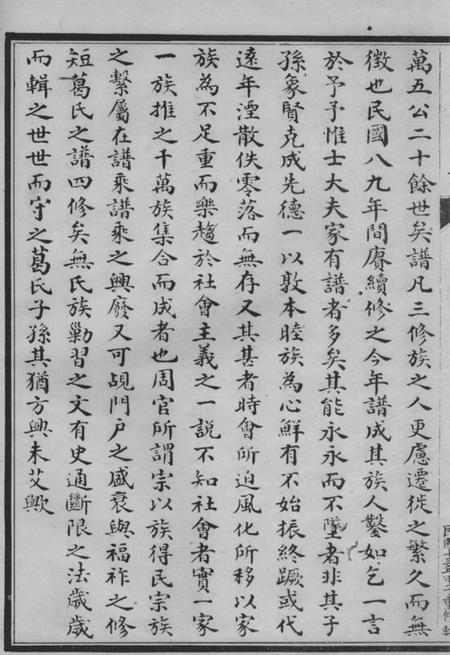 萬五公二十餘世矣譜凡三修族之人更慮遷徙之繁久而無
徵也民國八九年間賡續修之今年譜成其族人鑿如乞一言
於予予惟士大夫家有譜者多矣其能永永而不墜者非其子
孫象賢克成先德一以敦本睦族為心鮮有不始振終蹶或代
遠年湮散佚零落而無存又其甚者時會所迫風化所移以家
族為不足重而樂趨於社會主義之一說不知社會者實一家
一族推之千萬族集合而成者也周官所謂宗以族得民宗族
之繫屬在譜乘譜乘之興廢又可覘門戶之盛衰與福祚之修
短葛氏之譜四修矣無氏族勦習之文有史通斷限之法歲歲
而輯之世世而守之葛氏子孫其猶方興未艾歟